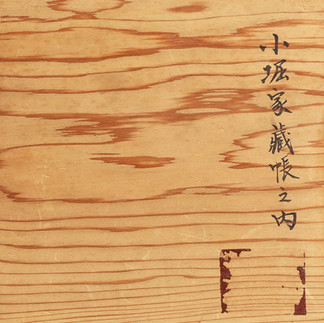 小堀家蔵帳之内